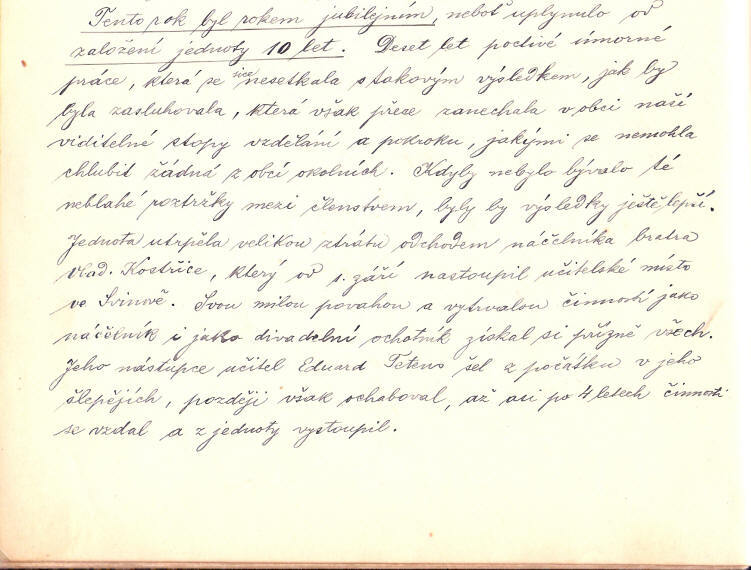 Tento rok byl rokem jubilejním, neboť uplynulo od
založení jednoty 10 let. Deset let poctivé úmorné
práce, která se sice nesetkala s takovým výsledkem, jak by
byla zasluhovala, která však přeze zanechala v obci naší
viditelné stopy vzdělání a pokroku, jakými se nemohla
chlubit žádná z obcí okolních. Kdyby nebylo bývalo té
neblahé roztržky mezi členstvem, byly by výsledky ještě lepší.
Jednota utrpěla velikou ztrátu odchodem náčelníka bratra
Vlad. Kostřice, který od 1. září nastoupil učitelské místo
ve Svinově. Svou milou povahou a vytrvalou činností jako
náčelník i jako divadelní ochotník získal si přízně všech.
Jeho nástupce učitel Eduard Tetens šel z počátku v jeho
šlepějích, později však ochaboval, až asi po 4 letech činnosti
se vzdal a z jednoty vystoupil.